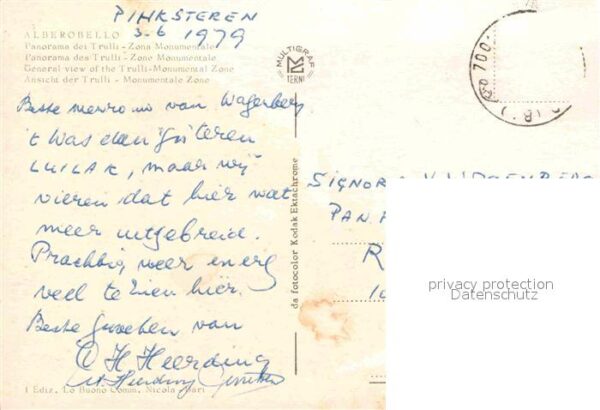 PINKSTEREN
3-6 1979
ALBEROBELLO
Panorama dei Trulli - Zona Monumentale
Panorama des Trulli - Zone Monumentale
General view of the Trulli - Monumental Zone
Ansicht der Trulli - Monumentale Zone
MULTIGRAF
TERNI
Beste mevrouw van Wagenberg
't Was dan gisteren
LUILAK, maar wij
vieren dat hier wat
meer uitgebreid.
Prachtig weer en erg
veel te zien hier.
Beste groeten van
H Heerding
da fotocolor Kodak Ektachrome
SIGNORA
PAN
R
privacy protection
Datenschutz
I Ediz. Lo Buono Comm. Nicola - Bari